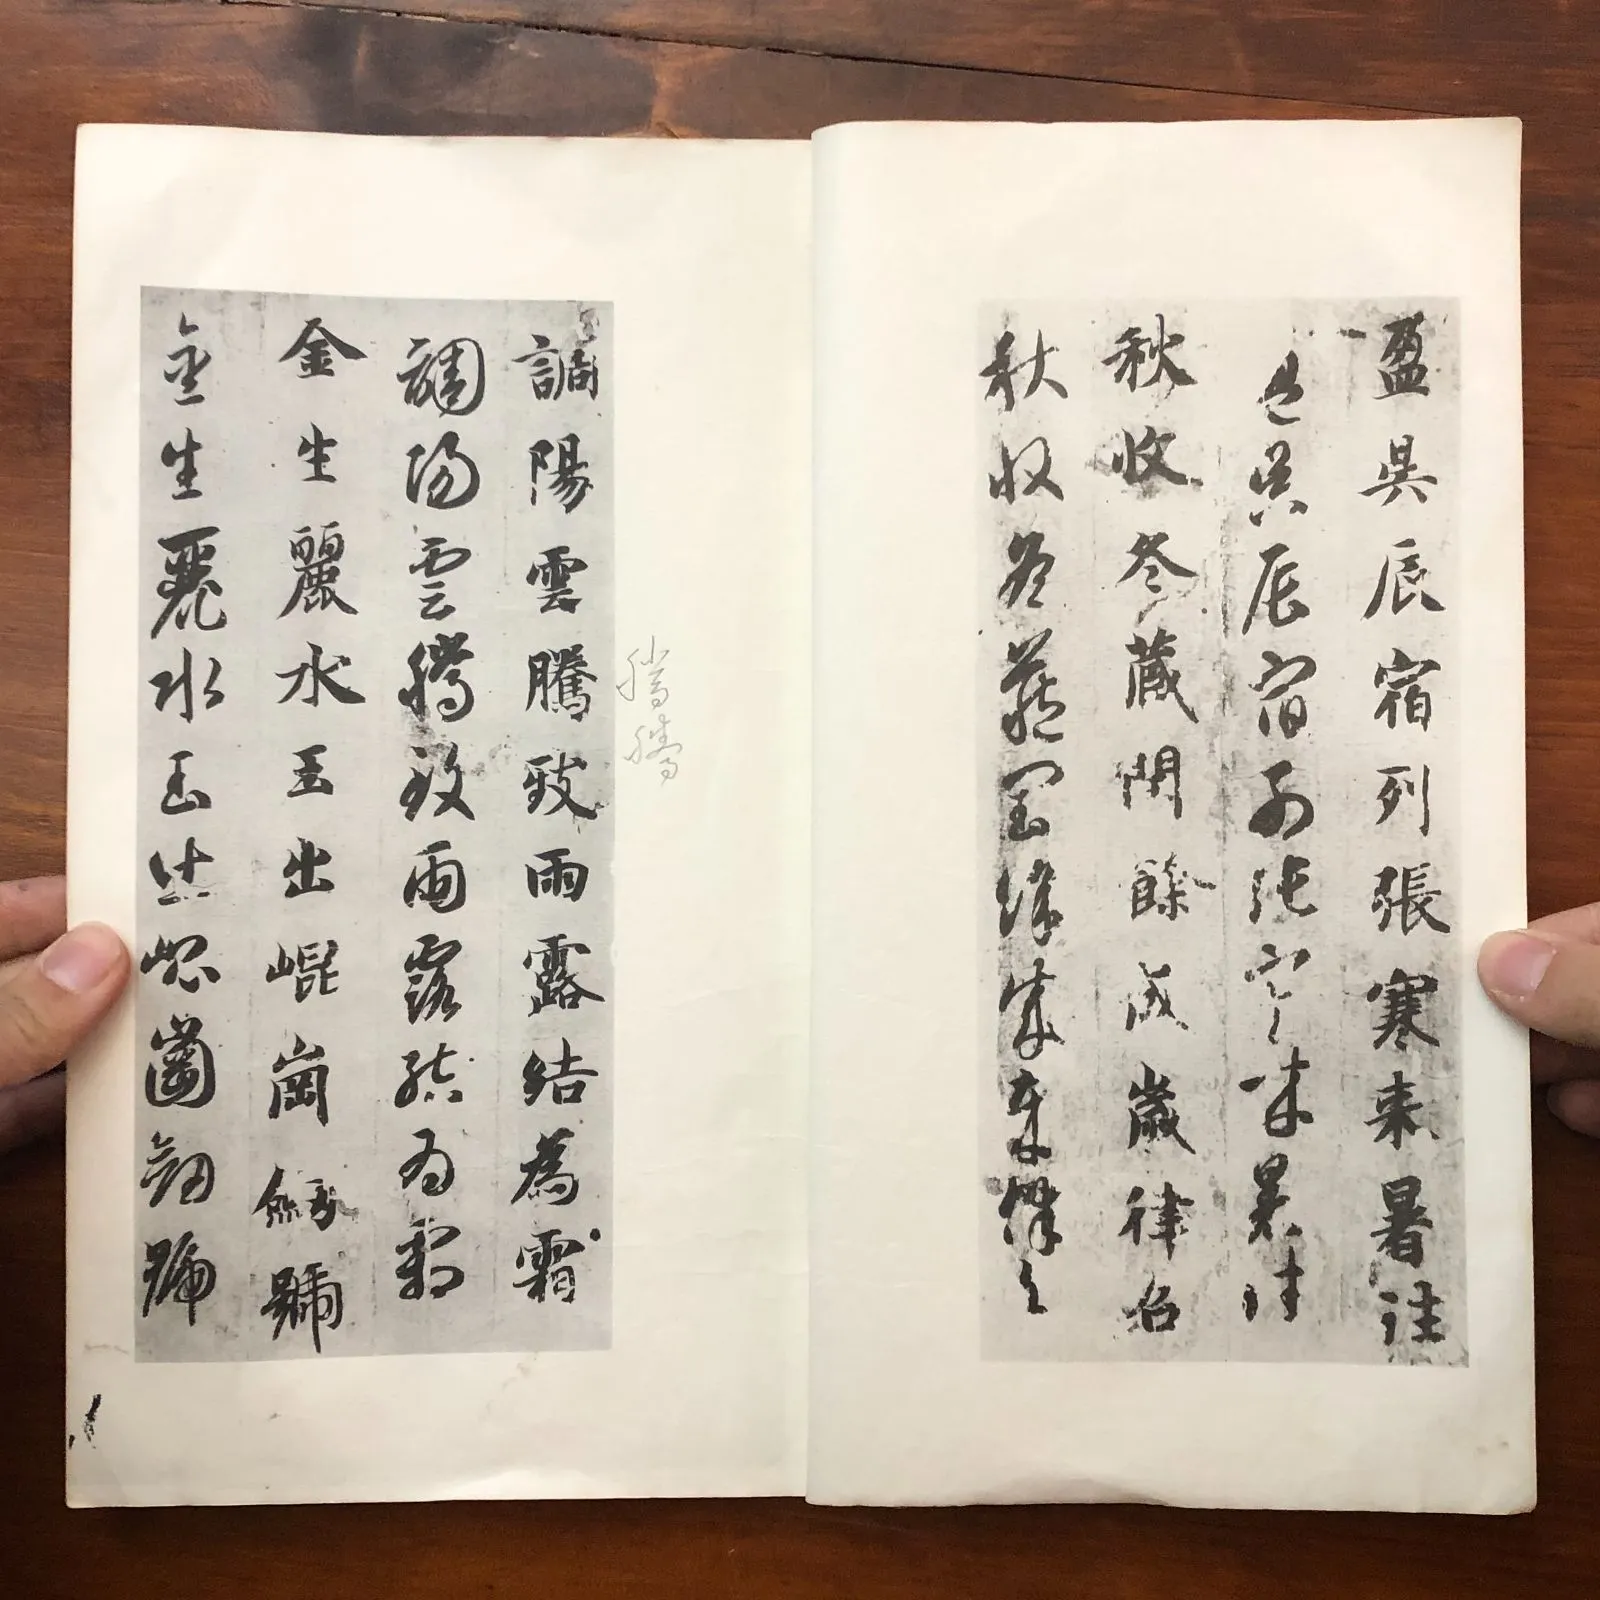 盈昃辰宿列張寒来暑往
盈昃辰宿列張寒来暑往
秋收冬藏閏餘成歲律召
秋收冬藏閏餘成歲律召
調陽雲騰致雨露結為霜
調陽雲騰致雨露結為霜
金生麗水玉出崐崗劒號
金生麗水玉出崐崗劒號
騰騰